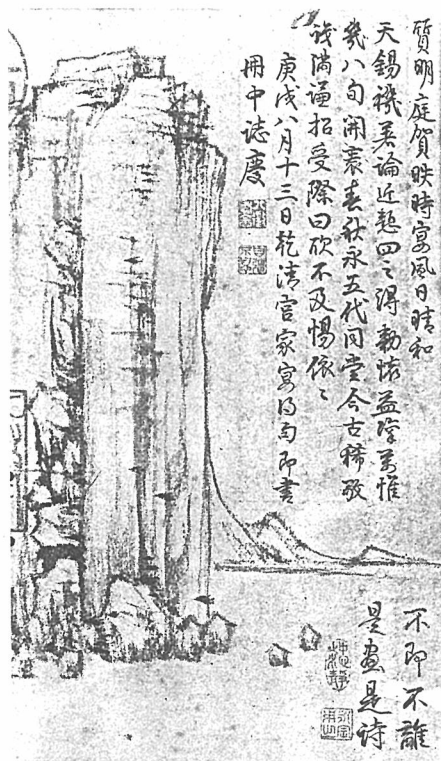 質明庭賀昳時宴風日晴和
天錫禨論近四之得勤懷益萬惟
幾八旬開袠春秋永五代同堂今古稀敬
滿謙招受際曰不及惕依〻
庚戌八月十三日乾清宮家宴得句即書
冊中誌慶
不即不離
是畫是詩